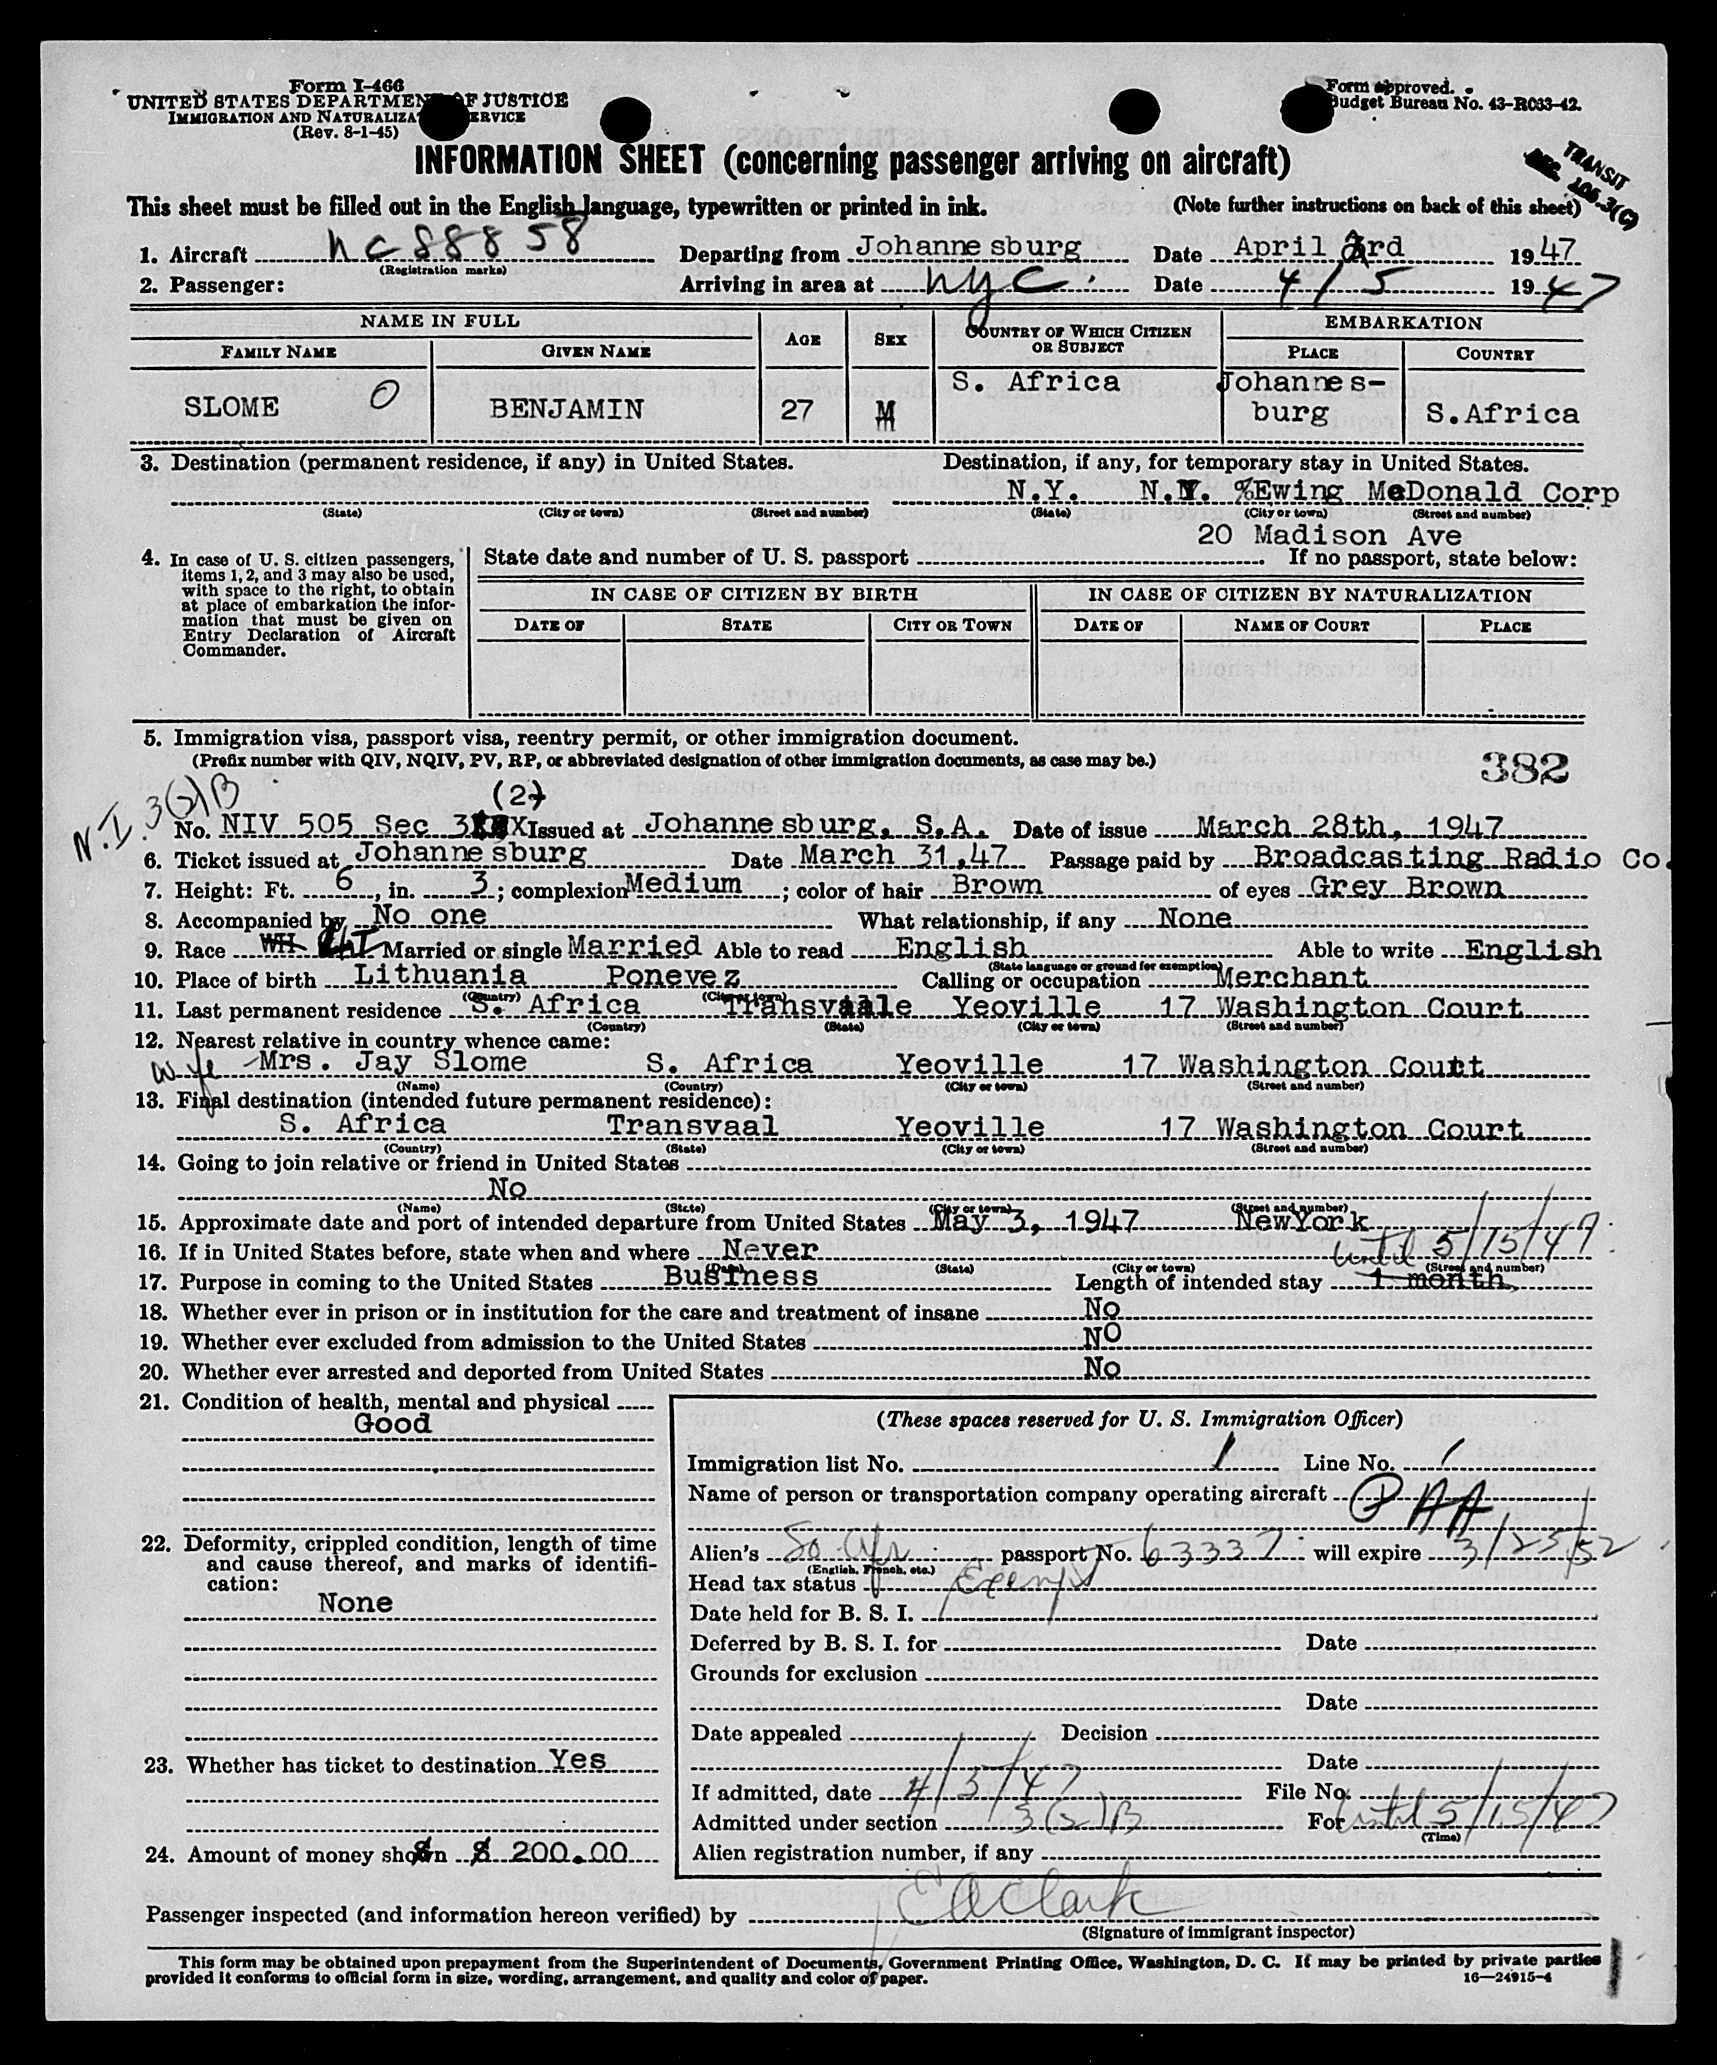 Form I-466
UNITED STATES DEPARTMENT OF JUSTICE
IMMIGRATION AND NATURALIZATION SERVICE
(Rev. 8-1-45)
Form approved.
Budget Bureau No. 43-R033-42.
INFORMATION SHEET (concerning passenger arriving on aircraft)
TRANSIT
SEC. 105.3(C)
This sheet must be filled out in the English language, typewritten or printed in ink. (Note further instructions on back of this sheet)
1. Aircraft nc 88858 Departing from Johannesburg Date April 3rd 1947
(Registration marks)
2. Passenger: Arriving in area at nyc. Date 4/5 1947
NAME IN FULL AGE SEX COUNTRY OF WHICH CITIZEN OR SUBJECT EMBARKATION
FAMILY NAME GIVEN NAME PLACE COUNTRY
SLOME O BENJAMIN 27 M S. Africa Johannes-burg S.Africa
3. Destination (permanent residence, if any) in United States. Destination, if any, for temporary stay in United States.
N.Y. N.Y. %Ewing McDonald Corp
(State) (City or town) (Street and number) (State) (City or town) (Street and number)
20 Madison Ave
4. In case of U. S. citizen passengers, items 1, 2, and 3 may also be used, with space to the right, to obtain at place of embarkation the information that must be given on Entry Declaration of Aircraft Commander.
State date and number of U. S. passport If no passport, state below:
IN CASE OF CITIZEN BY BIRTH IN CASE OF CITIZEN BY NATURALIZATION
DATE OF STATE CITY OR TOWN DATE OF NAME OF COURT PLACE
5. Immigration visa, passport visa, reentry permit, or other immigration document.
(Prefix number with QIV, NQIV, PV, RP, or abbreviated designation of other immigration documents, as case may be.)
382
N.I. 3(2)B
(2)
No. NIV 505 Sec 3 Issued at Johannesburg, S.A. Date of issue March 28th, 1947
6. Ticket issued at Johannesburg Date March 31,47 Passage paid by Broadcasting Radio Co.
7. Height: Ft. 6, in. 3; complexion Medium; color of hair Brown of eyes Grey Brown
8. Accompanied by No one What relationship, if any None
9. Race WH Married or single Married Able to read English Able to write English
(State language or ground for exemption)
10. Place of birth Lithuania Ponevez Calling or occupation Merchant
(Country) (City or town)
11. Last permanent residence S. Africa Transvaale Yeoville 17 Washington Court
(Country) (State) (City or town) (Street and number)
12. Nearest relative in country whence came:
wife Mrs. Jay Slome S. Africa Yeoville 17 Washington Coutt
(Name) (Country) (City or town) (Street and number)
13. Final destination (intended future permanent residence):
S. Africa Transvaal Yeoville 17 Washington Court
(Country) (State) (City or town) (Street and number)
14. Going to join relative or friend in United States
No
(Name) (State) (City or town) (Street and number)
15. Approximate date and port of intended departure from United States May 3, 1947 NewYork
16. If in United States before, state when and where Never until 5/15/47.
(Date) (State) (City or town) (Street and number)
17. Purpose in coming to the United States Business Length of intended stay 1 month,
18. Whether ever in prison or in institution for the care and treatment of insane No
19. Whether ever excluded from admission to the United States NO
20. Whether ever arrested and deported from United States No
21. Condition of health, mental and physical
Good
22. Deformity, crippled condition, length of time and cause thereof, and marks of identification:
None
23. Whether has ticket to destination Yes
24. Amount of money shown $ 200.00
(These spaces reserved for U. S. Immigration Officer)
Immigration list No. 1 Line No. 1
Name of person or transportation company operating aircraft PAA
Alien's So. Afr. passport No. 63337 will expire 3/25/52
(English, French, etc.)
Head tax status Exempt
Date held for B. S. I.
Deferred by B. S. I. for Date
Grounds for exclusion
Date
Date appealed Decision
Date
If admitted, date 4/5/47 File No.
Admitted under section 3(2)B For until 5/15/47
(Time)
Alien registration number, if any
Passenger inspected (and information hereon verified) by E A Clark
(Signature of immigrant inspector)
This form may be obtained upon prepayment from the Superintendent of Documents, Government Printing Office, Washington, D. C. If may be printed by private parties
provided it conforms to official form in size, wording, arrangement, and quality and color of paper. 16—24915-4